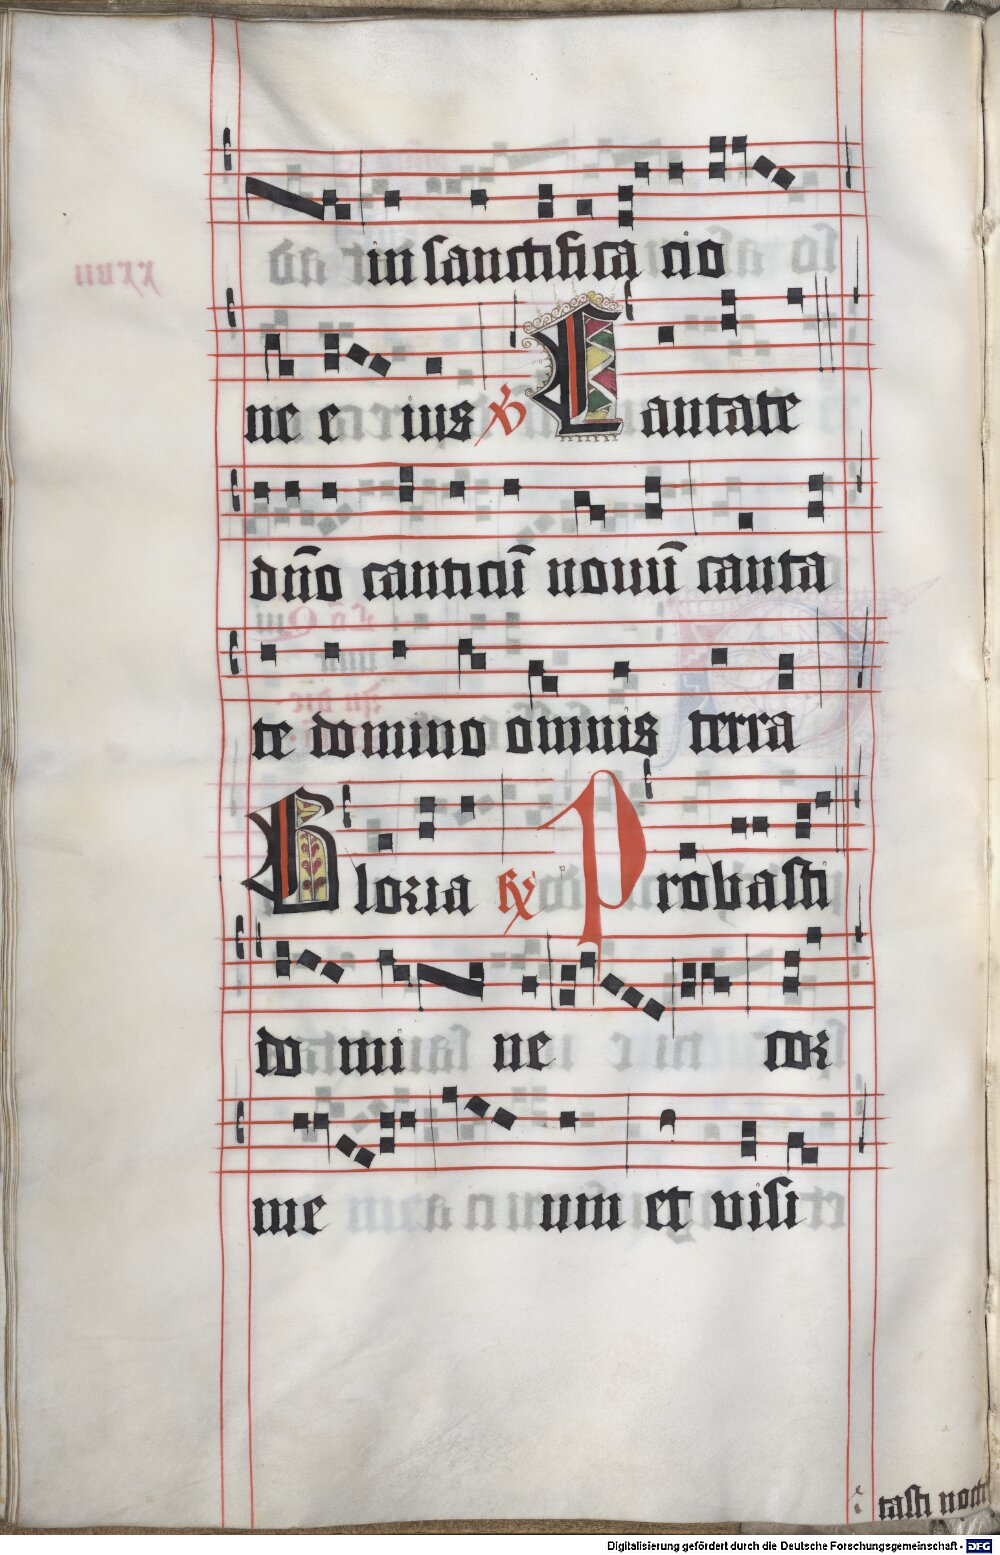 in sanctifica cio
ne e ius ℣ Cantate
dn̄o canticū nouū canta
te domino omnis terra
Gloria ℟ Probasti
do mi ne cor
me um et visi
tasti nocte
Digitalisierung gefördert durch die Deutsche Forschungsgemeinschaft - DFG